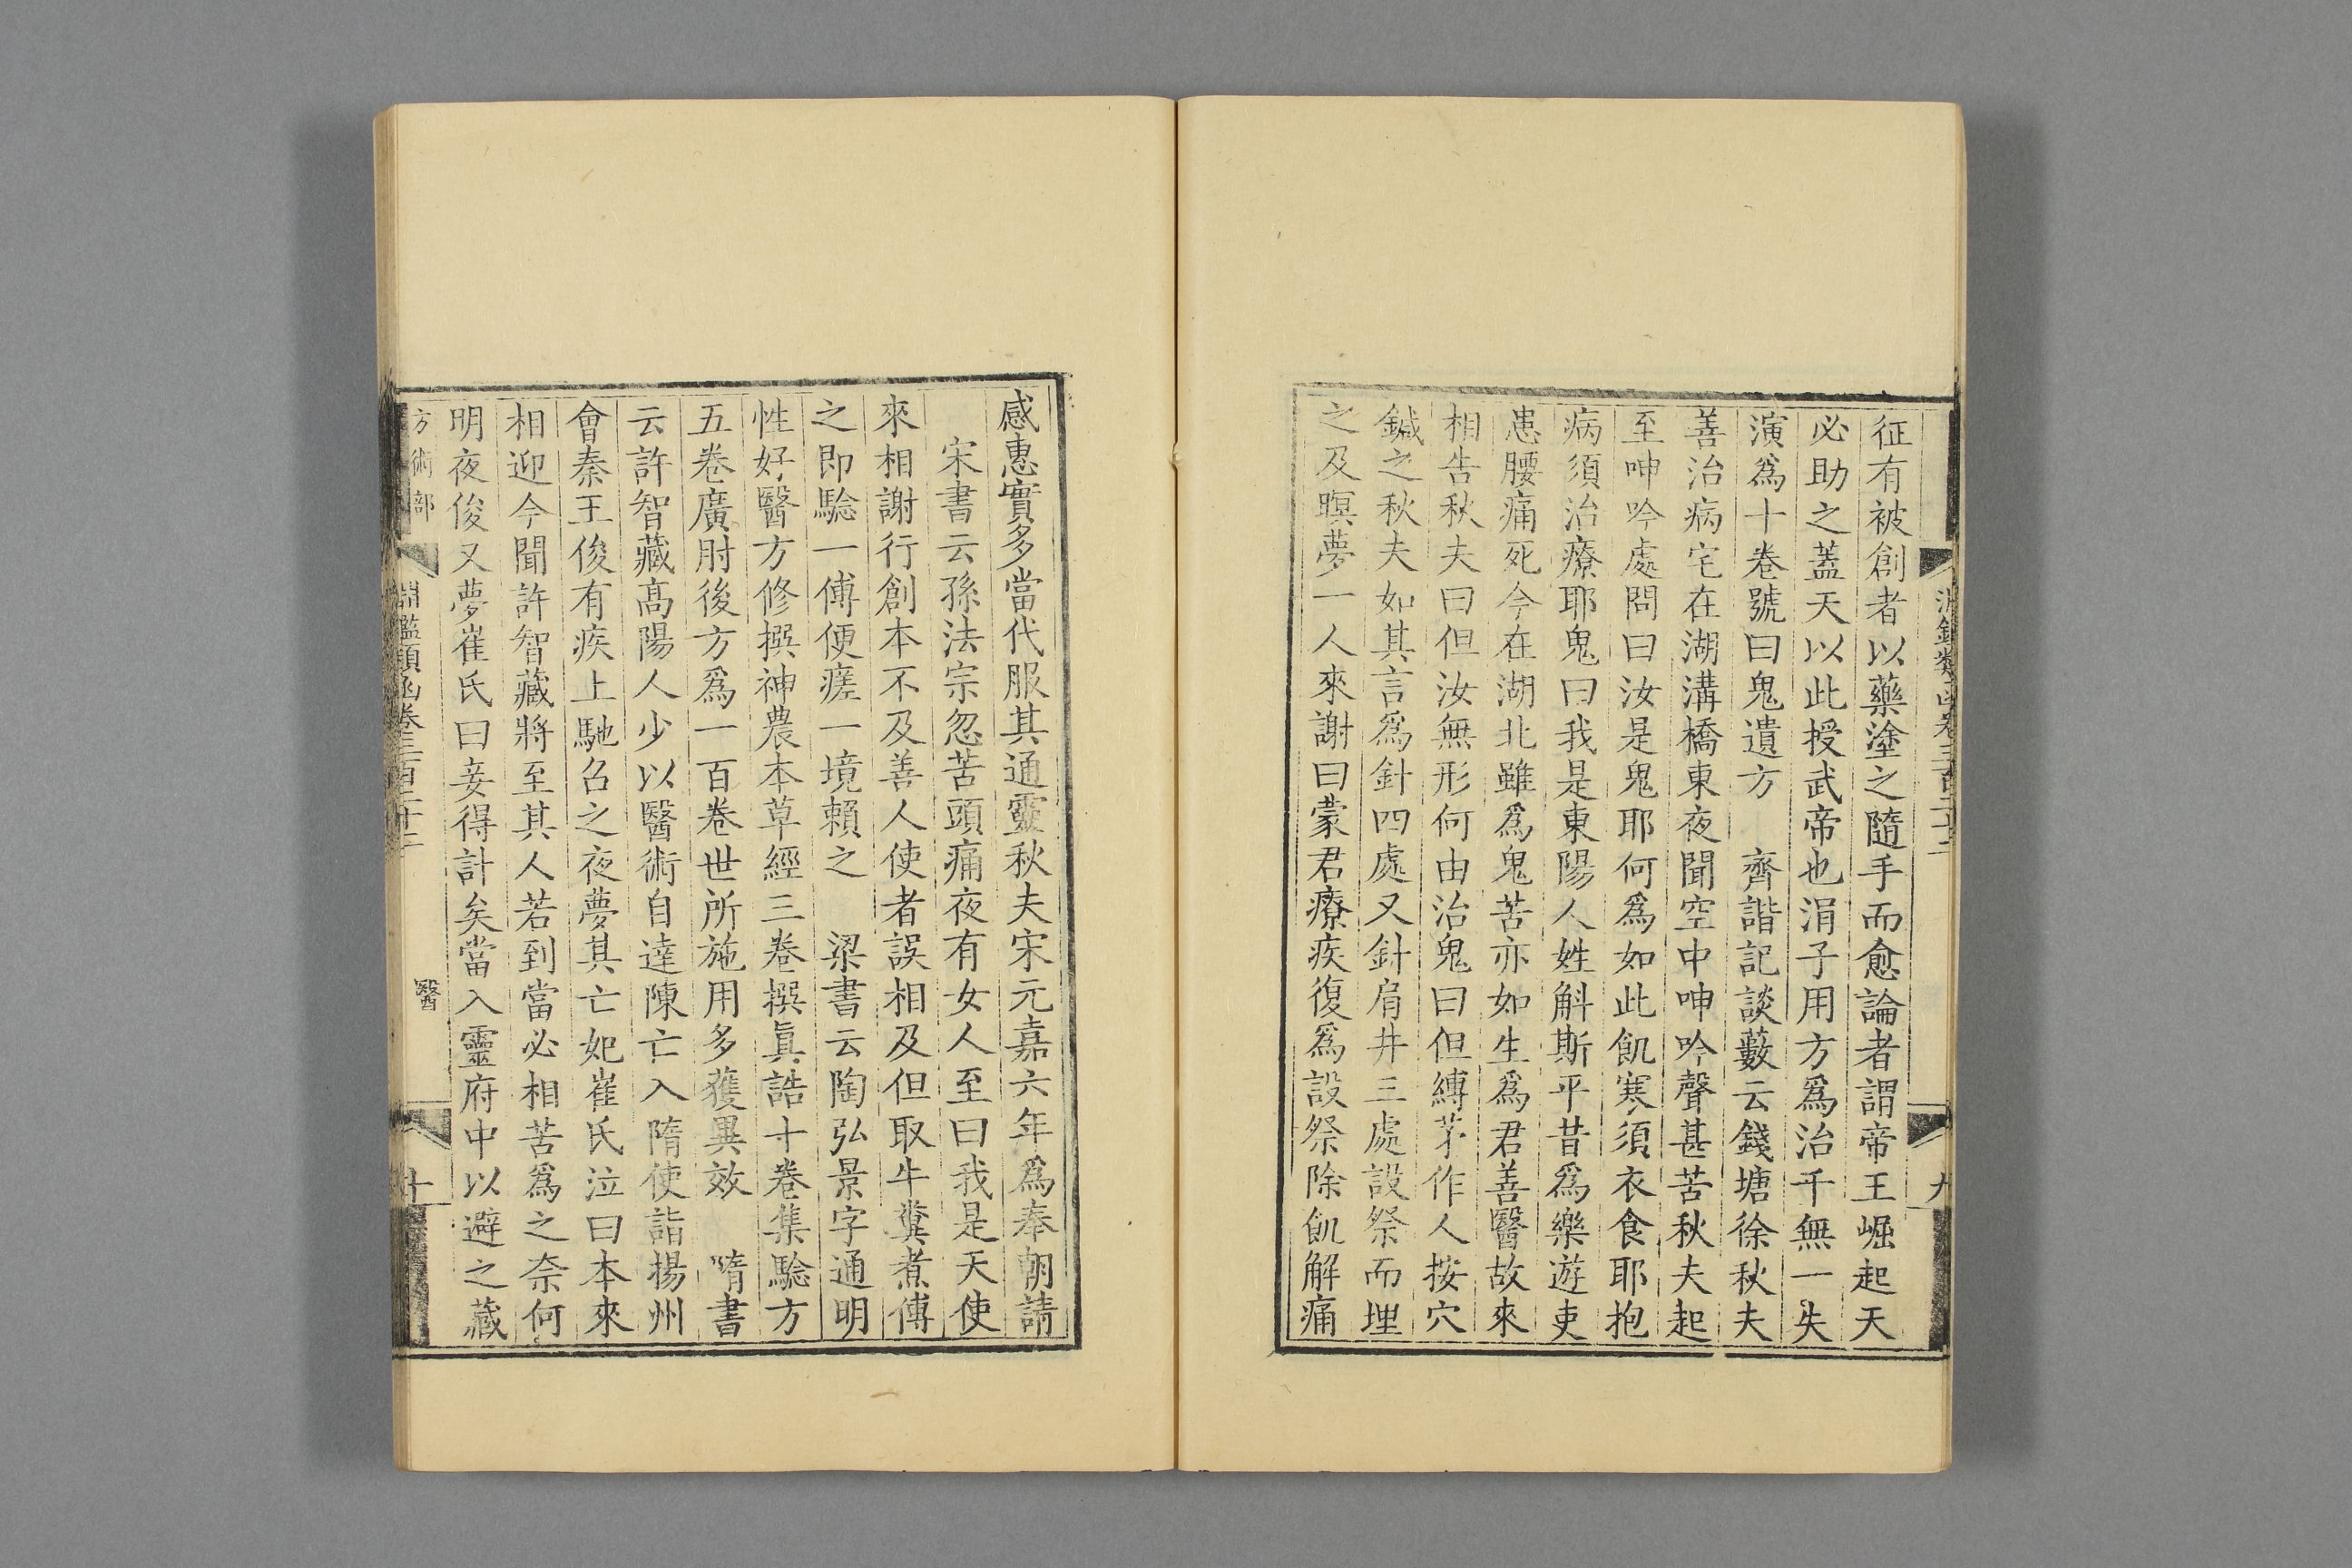 征有被創者以藥塗之隨手而愈論者謂帝王崛起天
必助之蓋天以此授武帝也涓子用方爲治千無一失
演爲十卷號曰鬼遺方　齊諧記談藪云錢塘徐秋夫
善治病宅在湖溝橋東夜聞空中呻吟聲甚苦秋夫起
至呻吟處問曰汝是鬼耶何爲如此飢寒須衣食耶抱
病須治療耶鬼曰我是東陽人姓斛斯平昔爲樂遊吏
患腰痛死今在湖北雖爲鬼苦亦如生爲君善醫故來
相告秋夫曰但汝無形何由治鬼曰但縛茅作人按穴
鍼之秋夫如其言爲針四處又針肩井三處設祭而埋
之及暝夢一人來謝曰蒙君療疾復爲設祭除飢解痛
感惠實多當代服其通靈秋夫宋元嘉六年爲奉朝請
宋書云孫法宗忽苦頭痛夜有女人至曰我是天使
來相謝行創本不及善人使者誤相及但取牛糞煮傅
之即驗一傅便瘥一境賴之　梁書云陶弘景字通明
性好醫方修撰神農本草經三卷撰眞誥十卷集驗方
五卷廣肘後方爲一百卷世所施用多獲異效　隋書
云許智藏高陽人少以醫術自達陳亡入隋使詣揚州
會秦王俊有疾上馳召之夜夢其亡妃崔氏泣曰本來
相迎今聞許智藏將至其人若到當必相苦爲之奈何
明夜俊又夢崔氏曰妾得計矣當入靈府中以避之藏
方術部　淵鑑類函卷三百二十二　醫　十